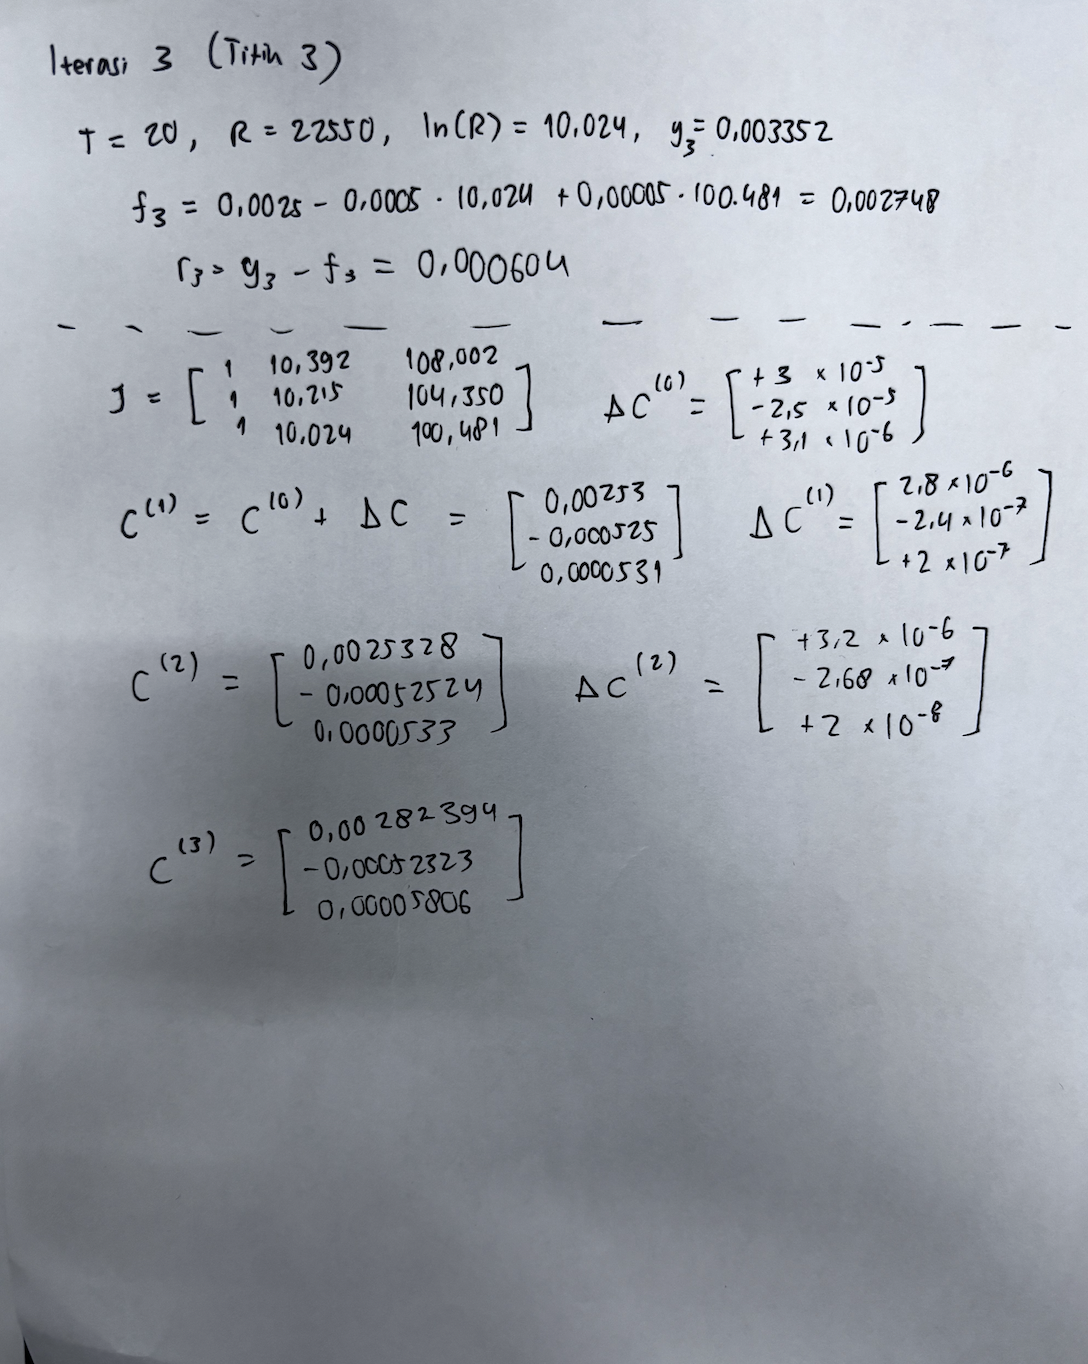 Iterasi 3 (Titik 3)
T = 20, R = 22550, ln(R) = 10.024, y₃ = 0,003352
f₃ = 0,0025 - 0,0005 · 10,024 + 0,00005 · 100.481 = 0,002748
r₃ = y₃ - f₃ = 0,000604
J = [ 1 10,392 108,002
1 10,215 104,350
1 10.024 100,481 ]
ΔC⁽⁰⁾ = [ +3 × 10⁻⁵
-2,5 × 10⁻⁵
+3,1 × 10⁻⁶ ]
C⁽¹⁾ = C⁽⁰⁾ + ΔC = [ 0,00253
-0,000525
0,0000531 ]
ΔC⁽¹⁾ = [ 2,8 × 10⁻⁶
-2,4 × 10⁻⁷
+2 × 10⁻⁷ ]
C⁽²⁾ = [ 0,0025328
-0,00052524
0,0000533 ]
ΔC⁽²⁾ = [ +3,2 × 10⁻⁶
-2,68 × 10⁻⁷
+2 × 10⁻⁸ ]
C⁽³⁾ = [ 0,00282394
-0,00052323
0,00005806 ]